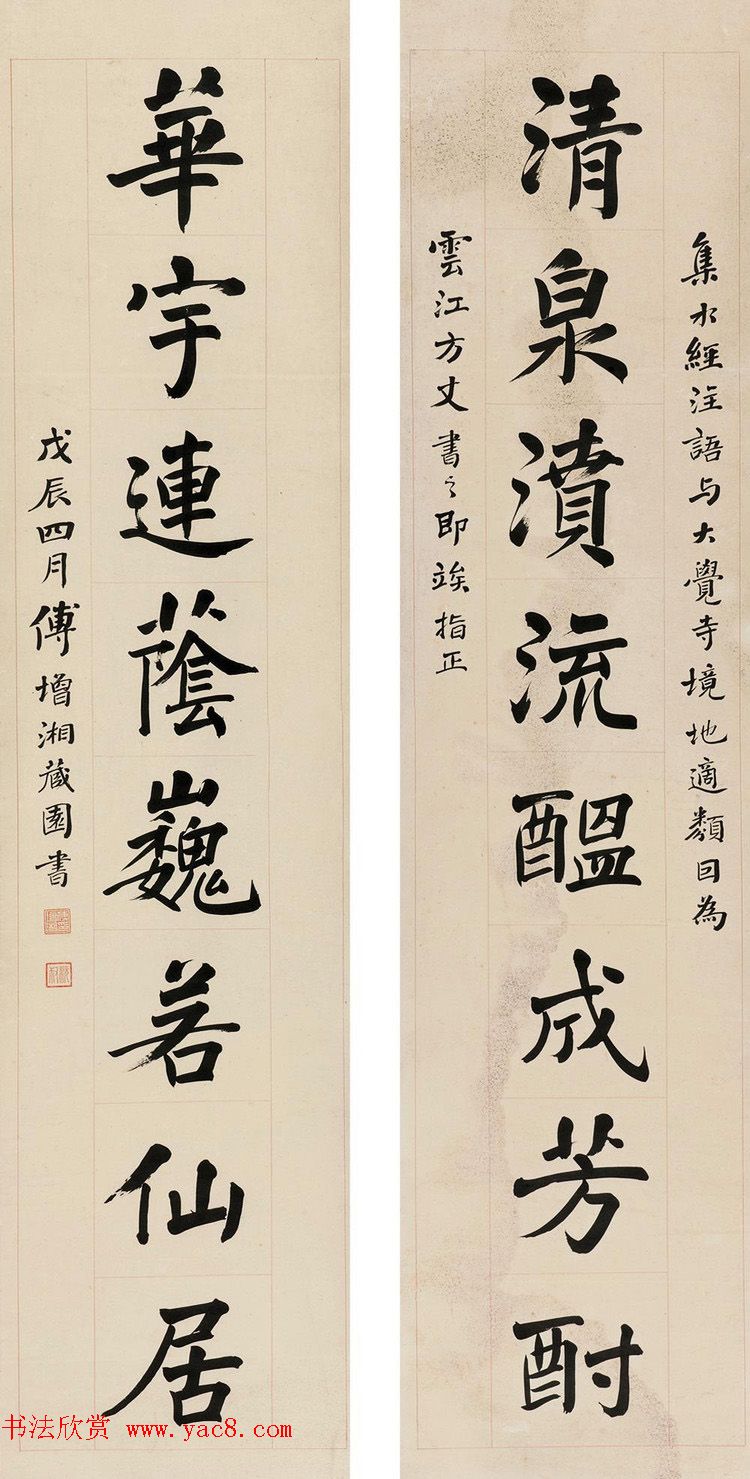 集水經注語与大覺寺境地適類因為
清泉濆流醞成芳酎
雲江方丈書之即竢指正
華宇連蔭巍若仙居
戊辰四月傅增湘藏園書
书法欣赏 www.yac8.com